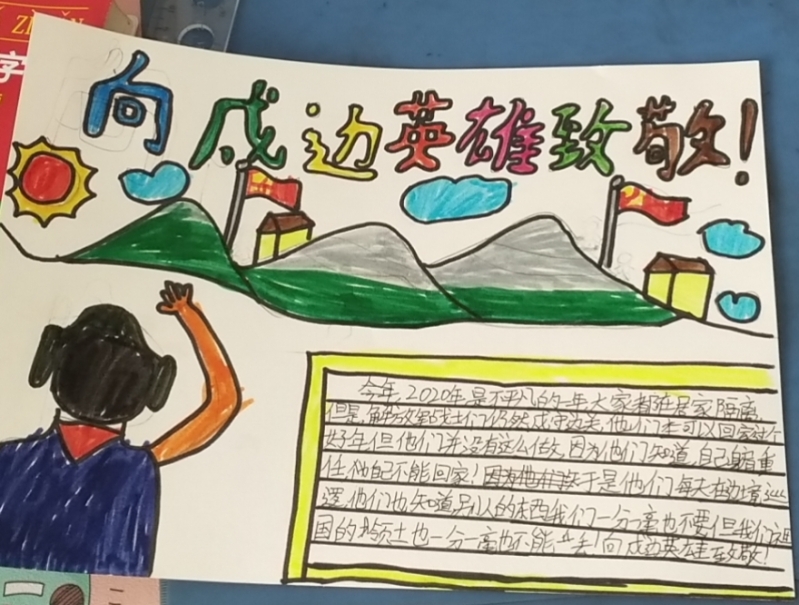 向戍边英雄致敬！
今年,2020年,是不平凡的一年大家都在居家隔离
但是,解放军战士们仍然戍守边关,他们本可以回家过个
好年但他们并没有这么做,因为他们知道,自己身肩重
任 不能回家！因为他们 于是他们每天在边境
逻,他们也知道别人的东西我们一分一毫也不要但我们
国的领土也一分一毫也不能 丢！向戍边英雄致敬！
字